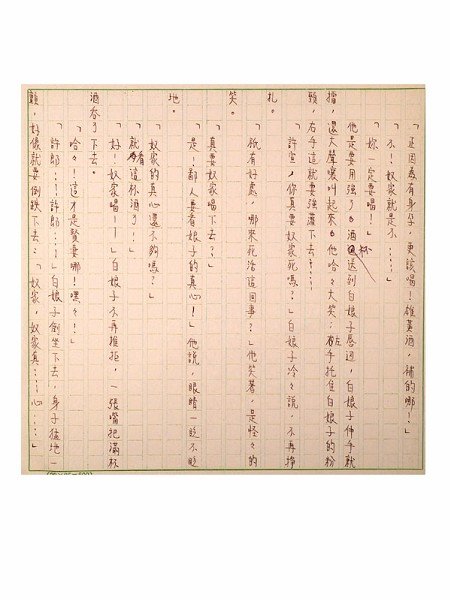 「正因為有身孕，更該喝！雄黃酒，補的哪！」
「不！奴家就是不……」
「妳一定要喝！」
他是要用強了。酒杯送到白娘子唇邊，白娘子伸手就
擋，還大聲嚷叫起來。他哈々大笑；左手托住白娘子的粉
頸，右手這就要強灌下去……
「許宣，你真要奴家死嗎？」白娘子冷々說，不再掙
扎。
「飲有好處，哪來死活這回事？」他笑著，是怪々的
笑。
「真要奴家喝下去？」
「是！鄙人要看娘子的真心！」他說，眼睛一眨不眨
地。
「奴家的真心還不夠嗎？」
「就看這杯酒了！」
「好！奴家喝！」白娘子不再推拒，一張嘴把滿杯
酒吞了下去。
「哈々！這才是賢妻哪！嘿々！」
「許郎……許郎……」白娘子倒坐下去，身子猛地一
顫，好像就要倒跌下去：「奴家，奴家真……心……」